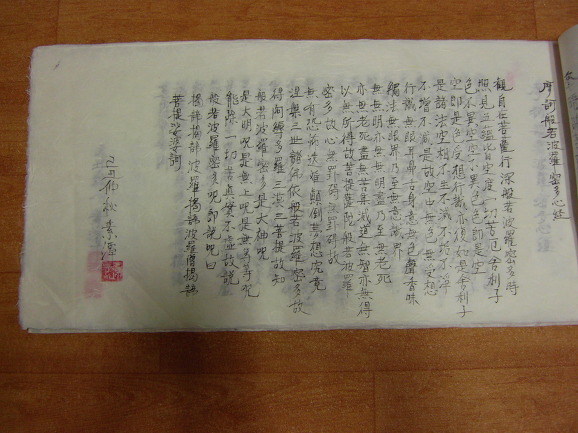 摩訶般若波羅蜜多心経
觀自在菩薩行深般若波羅蜜多時
照見五蘊皆空度一切苦厄舍利子
色不異空空不異色色即是空
空即是色受想行識亦復如是舍利子
是諸法空相不生不滅不垢不淨
不增不減是故空中無色無受想
行識無眼耳鼻舌身意無色聲香味
觸法無眼界乃至無意識界
無無明亦無無明盡乃至無老死
亦無老死盡無苦集滅道無智亦無得
以無所得故菩提薩埵依般若波羅
蜜多故心無罣礙無罣礙故
無有恐怖遠離顛倒夢想究竟
涅槃三世諸佛依般若波羅蜜多故
得阿耨多羅三藐三菩提故知
般若波羅蜜多是大神呪
是大明呪是無上呪是無等等呪
能除一切苦真實不虛故說
般若波羅蜜多呪即說呪曰
揭諦揭諦波羅揭諦波羅僧揭諦
菩提娑婆訶
仲秋